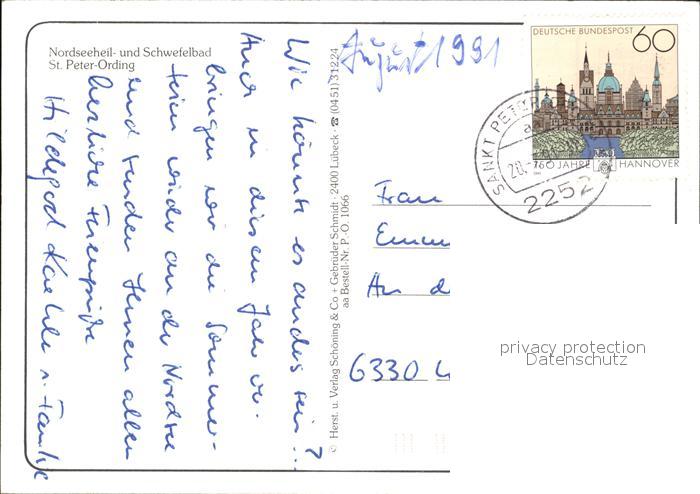 Nordseeheil- und Schwefelbad
St. Peter-Ording
August 1991
Wie könnte es anders sein? ...
Auch in diesem Jahr ver-
bringen wir die Sommer-
ferien wieder an der Nordsee
und senden Ihnen allen
herzliche Feriengrüße
Hildegard u. Familie
© Herst. u. Verlag Schöning & Co + Gebrüder Schmidt · 2400 Lübeck · ☎ (0451) 31224
aa Bestell-Nr. P.-O. 1066
DEUTSCHE BUNDESPOST 60
750 JAHRE HANNOVER
SANKT PETER
a
20.
2252
Frau
Emm
An d
6330
privacy protection
Datenschutz